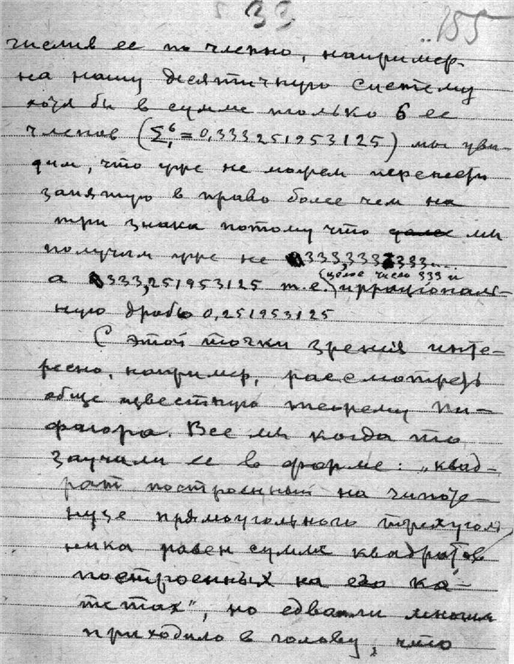 33
155
числив ее по членно, например
на нашу десятичную систему
хотя бы в сумме только 6 ее
членов (Σ₁⁶ = 0,333251953125) мы уви-
дим, что уже не можем перенести
запятую в право более чем на
три знака потому что мы
получим уже не 333,333333...
(целое число 333 и
а 333,251953125 т.е. иррационалъ-
ную дробь 0,251953125
С этой точки зрения инте-
ресно, например, рассмотреть
обще известную теорему Пи-
фагора. Все мы когда то
заучили ее в форме: „квад-
рат построенный на гипоте-
нузе прямоугольного треуголь
ника равен сумме квадратов
построенных на его ка-
тетах", но едва ли
приходило в голову, что